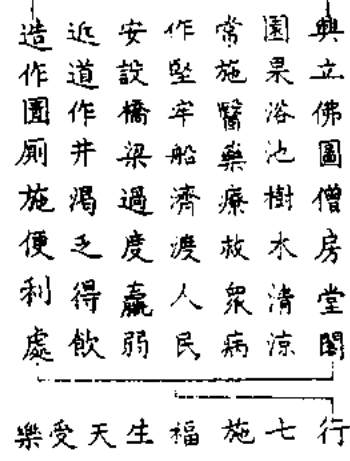 興立佛圖僧房堂閣
園果浴池樹木清涼
常施醫藥療救眾病
作堅牢船濟渡人民
安設橋梁過度羸弱
近道作井渴乏得飲
造作圊廁施便利處
行七施福生天受樂